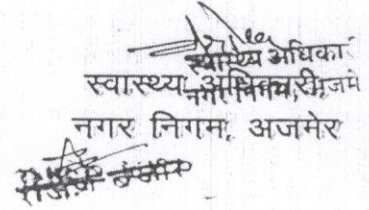 स्वास्थ्य अधिका
स्वास्थ्य अधिकारी
नगर निगम, अजमे
नगर निगम, अजमेर